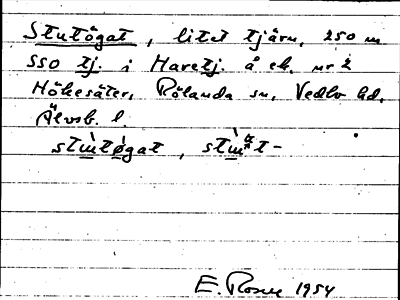 Stutögat, litet tjärn, 250 m
SSO tj. i Haretj. å ek. nr 2
Hökesäter, Rölanda sn, Vedbo hd,
Älvsb. l
E. Rosen 1954